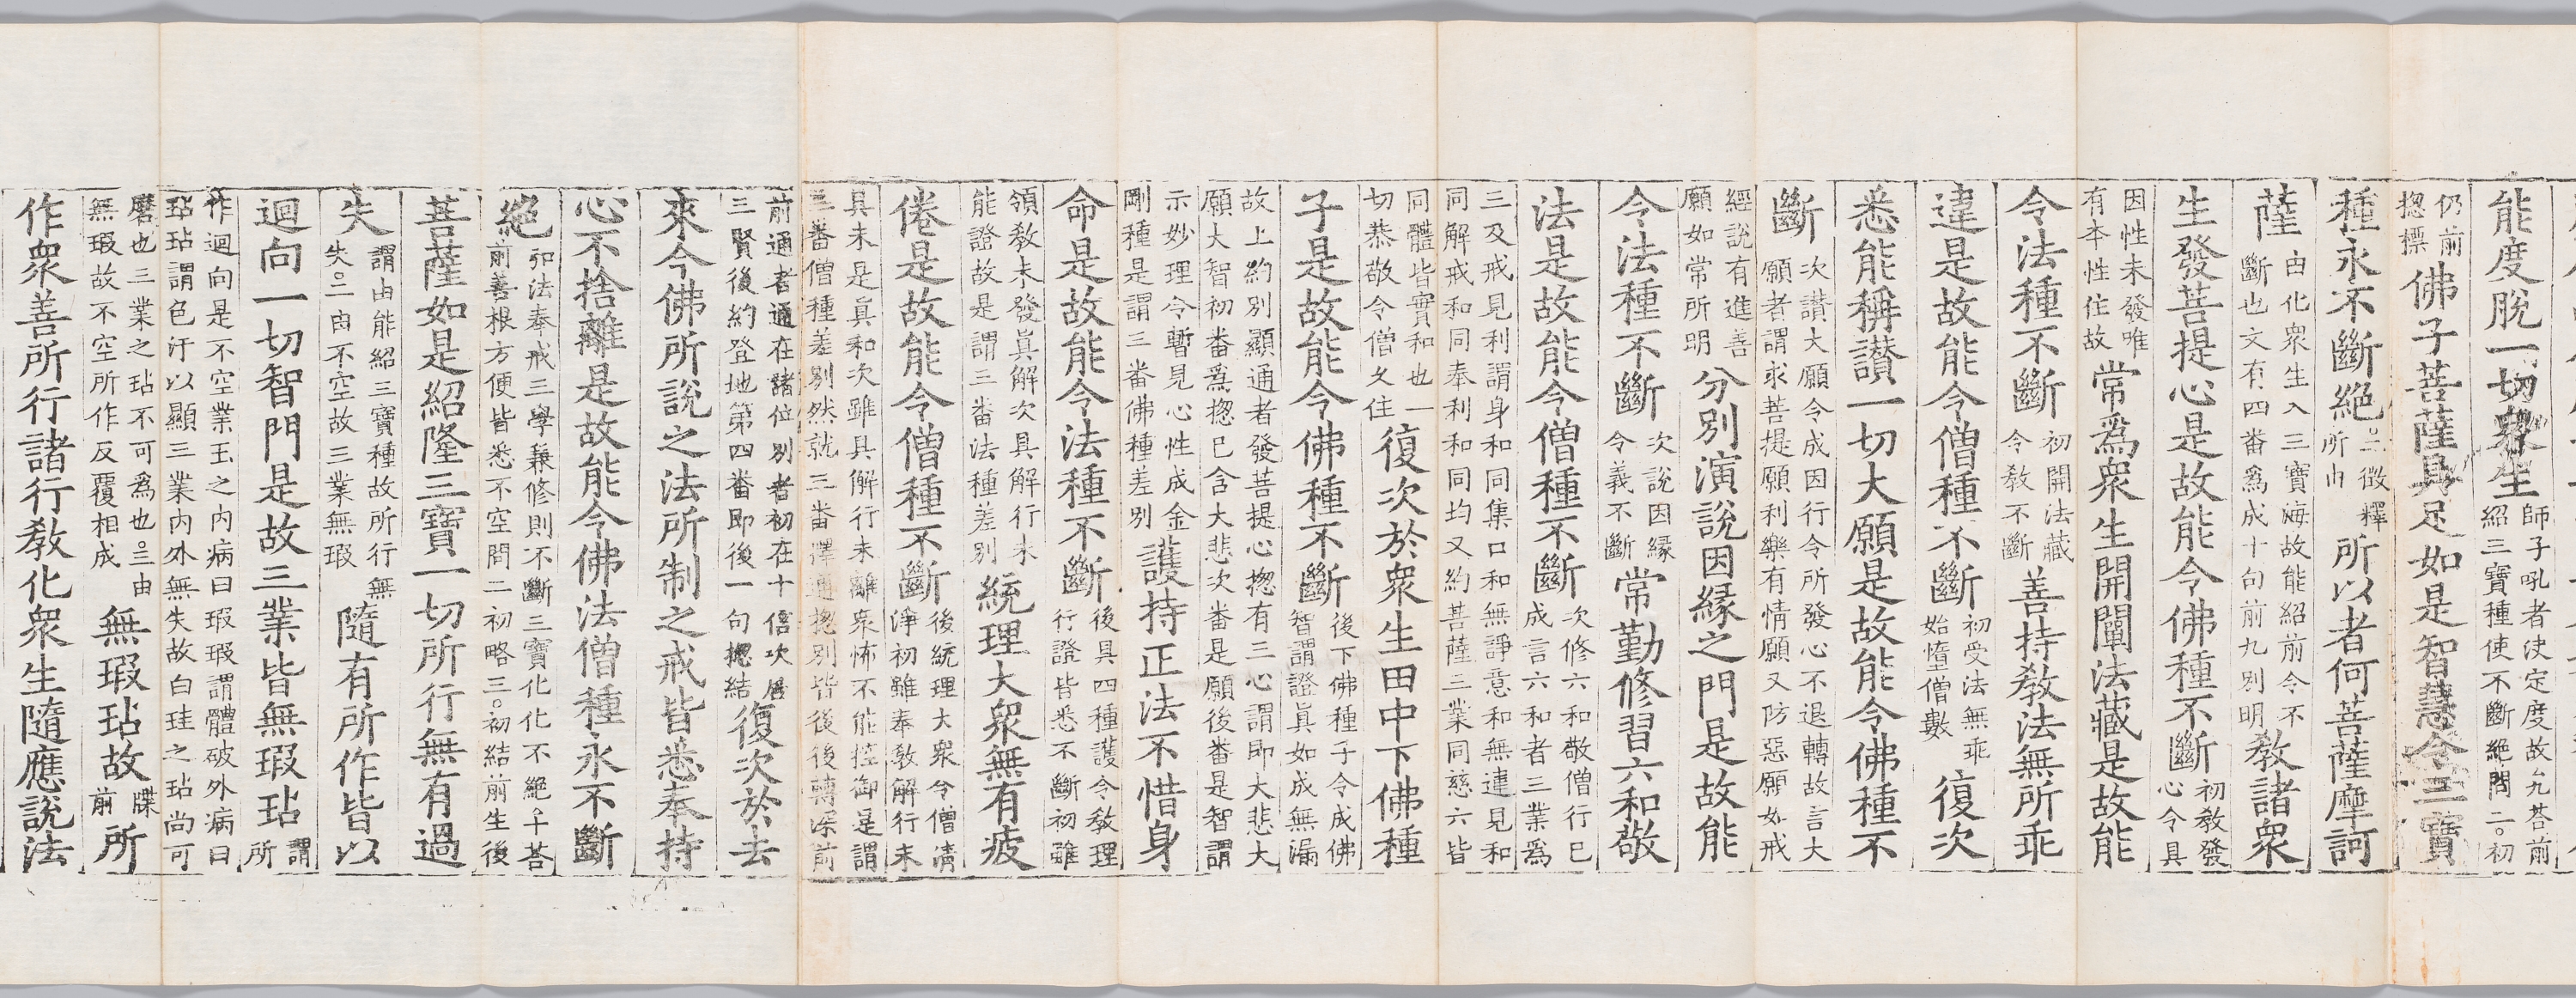 能度脫一切衆生師子吼者決定度故九荅前紹三寶種使不斷絕問二。初
仍前揔摽佛子菩薩具足如是智慧令三寶
種永不斷絕。二徵釋所由所以者何菩薩摩訶
薩由化衆生入三寶海故能紹前令不斷也文有四畨爲成十句前九別明教諸衆
生發菩提心是故能令佛種不斷初教發心令具
因性未發唯有本性住故常爲衆生開闡法藏是故能
令法種不斷初開法藏令教不斷善持教法無所乖
違是故能令僧種不斷初受法無乖始墮僧數復次
悉能稱讃一切大願是故能令佛種不
斷次讃大願令成因行令所發心不退轉故言大願者謂求菩提願利樂有情願又防惡願如戒
經說有進善願如常所明分別演說因緣之門是故能
令法種不斷次說因緣令義不斷常勤修習六和敬
法是故能令僧種不斷次修六和敬僧行已成言六和者三業爲
三及戒見利謂身和同集口和無諍意和無違見和同解戒和同奉利和同均又約菩薩三業同慈六皆
同體皆實和也一切恭敬令僧久住復次於衆生田中下佛種
子是故能令佛種不斷後下佛種子令成佛智謂證眞如成無漏
故上約別顯通者發菩提心揔有三心謂即大悲大願大智初畨爲揔已含大悲次畨是願後畨是智謂
示妙理令暫見心性成金剛種是謂三畨佛種差別護持正法不惜身
命是故能令法種不斷後具四種護令教理行證皆悉不斷初雖
領教未發眞解次具解行未能證故是謂三畨法種差別統理大衆無有疲
倦是故能令僧種不斷後統理大衆令僧淸淨初雖奉教解行未
具未是眞和次雖具解行未離衆怖不能控御是謂三畨僧種差別然就三畨釋通揔別皆後後轉深前
前通者通在諸位別者初在十信次居三賢後約登地第四畨即後一句揔結復次於去
來今佛所說之法所制之戒皆悉奉持
心不捨離是故能令佛法僧種永不斷
絕卽法奉戒三學兼修則不斷三寶化化不絕。十荅前善根方便皆悉不空問二初略三。初結前生後
菩薩如是紹隆三寶一切所行無有過
失謂由能紹三寶種故所行無失。二由不空故三業無瑕隨有所作皆以
迴向一切智門是故三業皆無瑕玷謂所
作迴向是不空業玉之內病曰瑕瑕謂體破外病曰玷玷謂色汙以顯三業內外無失故白珪之玷尚可
磨也三業之玷不可爲也。三由無瑕故不空所作反覆相成無瑕玷故牒前所
作衆善所行諸行教化衆生隨應說法